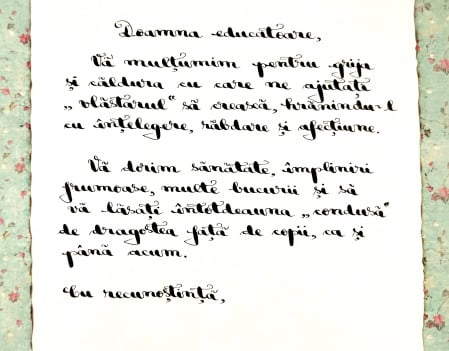 Doamna educătoare,
Vă mulțumim pentru grija
și căldura cu care ne ajutați
„vlăstarul" să crească, hrănindu-l
cu înțelegere, răbdare și afecțiune.
Vă dorim sănătate, împliniri
frumoase, multe bucurii și să
vă lăsați întotdeauna „condusă"
de dragostea față de copii, ca și
până acum.
Cu recunoștință,